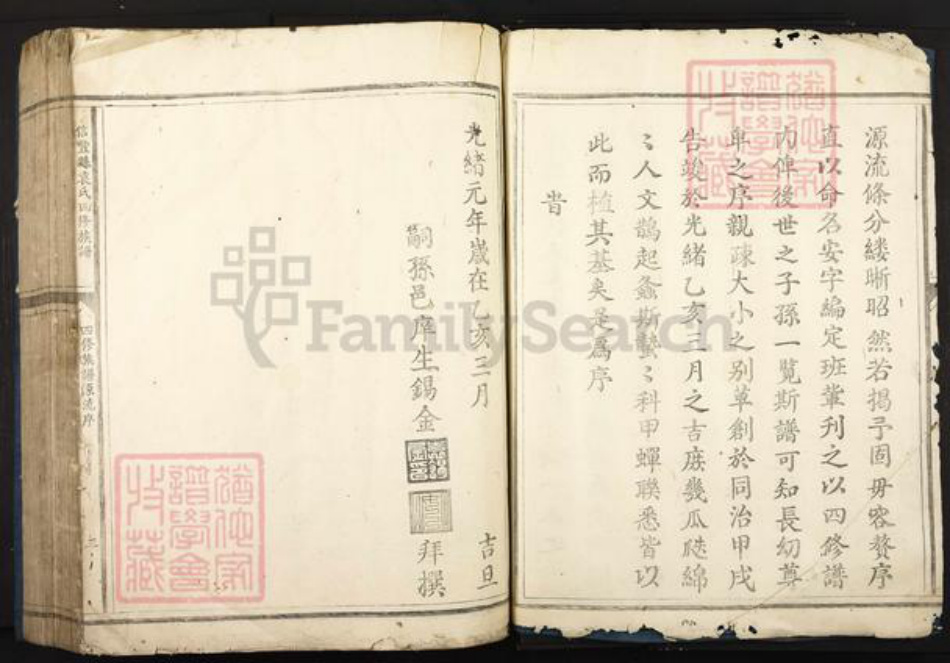 源流條分縷晰昭然若揭予固毋容贅序
直以命名安字編定班輩刋之以四修譜
內俾後世之子孫一覽斯譜可知長幼尊
卑之序親疎大小之别草創於同治甲戌
告竣於光緒乙亥三月之吉庻幾瓜瓞綿
〻人文鵲起螽斯蟄〻科甲蟬聯悉皆以
此而植其基矣是爲序
旹
光緒元年歲在乙亥三月 吉旦
嗣孫邑庠生錫金 拜撰
袁氏四修族譜
四修族譜源流序
猶他家譜學會收藏
猶他家譜學會收藏
FamilySearch